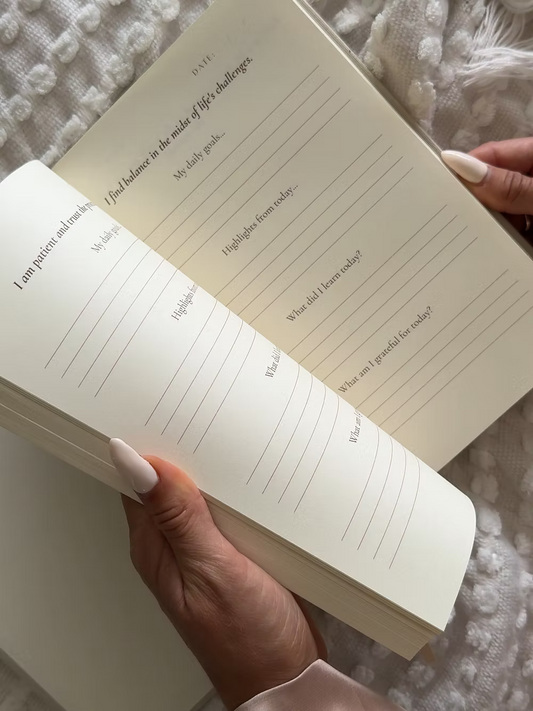 I am patient and trust the
My daily
Highlights
What did I
What am I
DATE:
I find balance in the midst of life's challenges.
My daily goals...
Highlights from today...
What did I learn today?
What am I grateful for today?